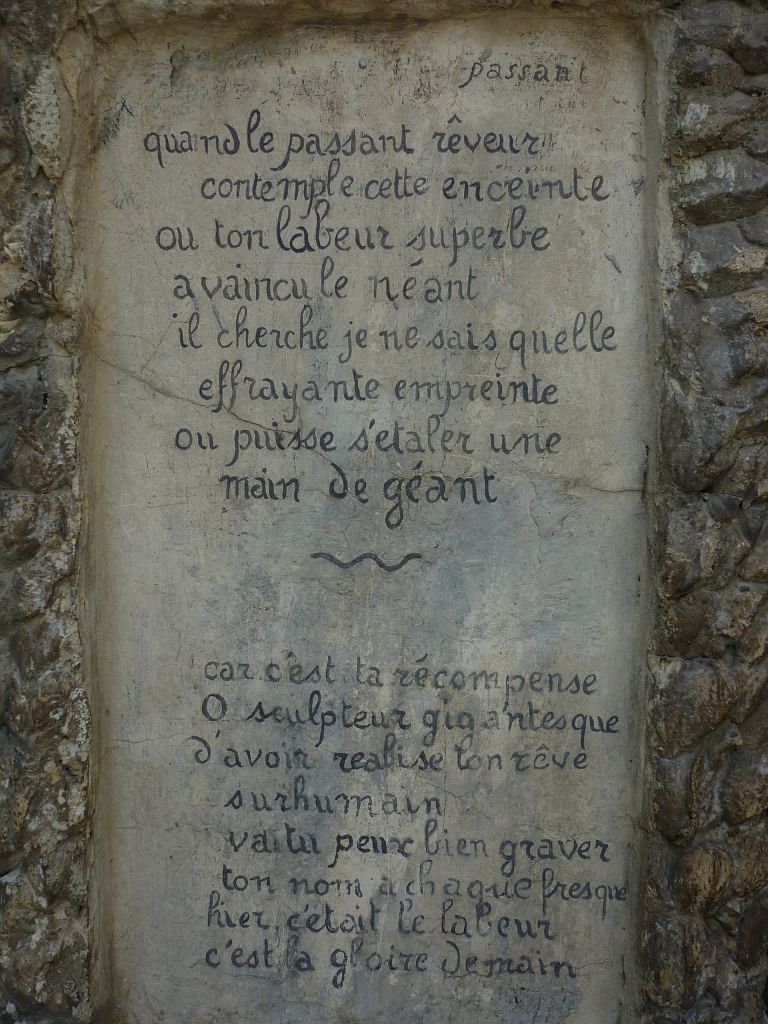 passant
quand le passant rêveur
contemple cette enceinte
ou ton labeur superbe
a vaincu le néant
il cherche je ne sais quelle
effrayante empreinte
ou puisse s'etaler une
main de géant
car c'est ta récompense
O sculpteur gigantesque
d'avoir realise ton rêve
surhumain
va tu peux bien graver
ton nom a chaque fresque
hier, c'étoit le labeur
c'est la gloire demain